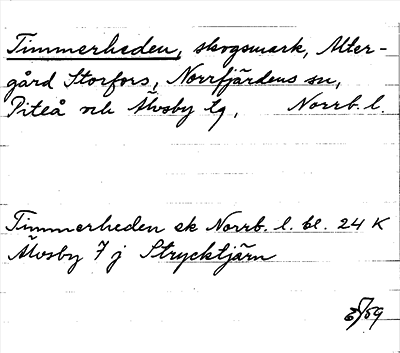 Timmerheden, skogsmark, Alter-
gård Storfors, Norrfjärdens sn,
Piteå och Älvsby tg, Norrb. l.
Timmerheden ek Norrb. l. bl. 24 K
Älvsby 7 j Strycktjärn
/59